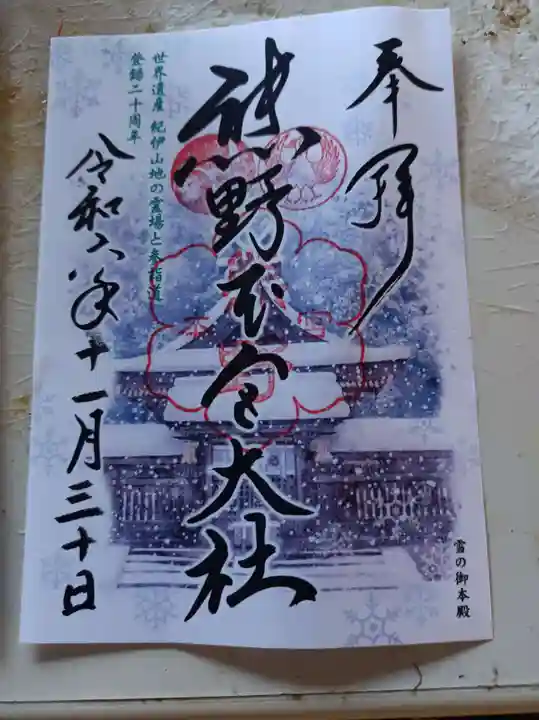 奉拝
熊野本宮大社
世界遺産 紀伊山地の霊場と参詣道
登録二十周年
令和六年十一月三十日
雪の御本殿